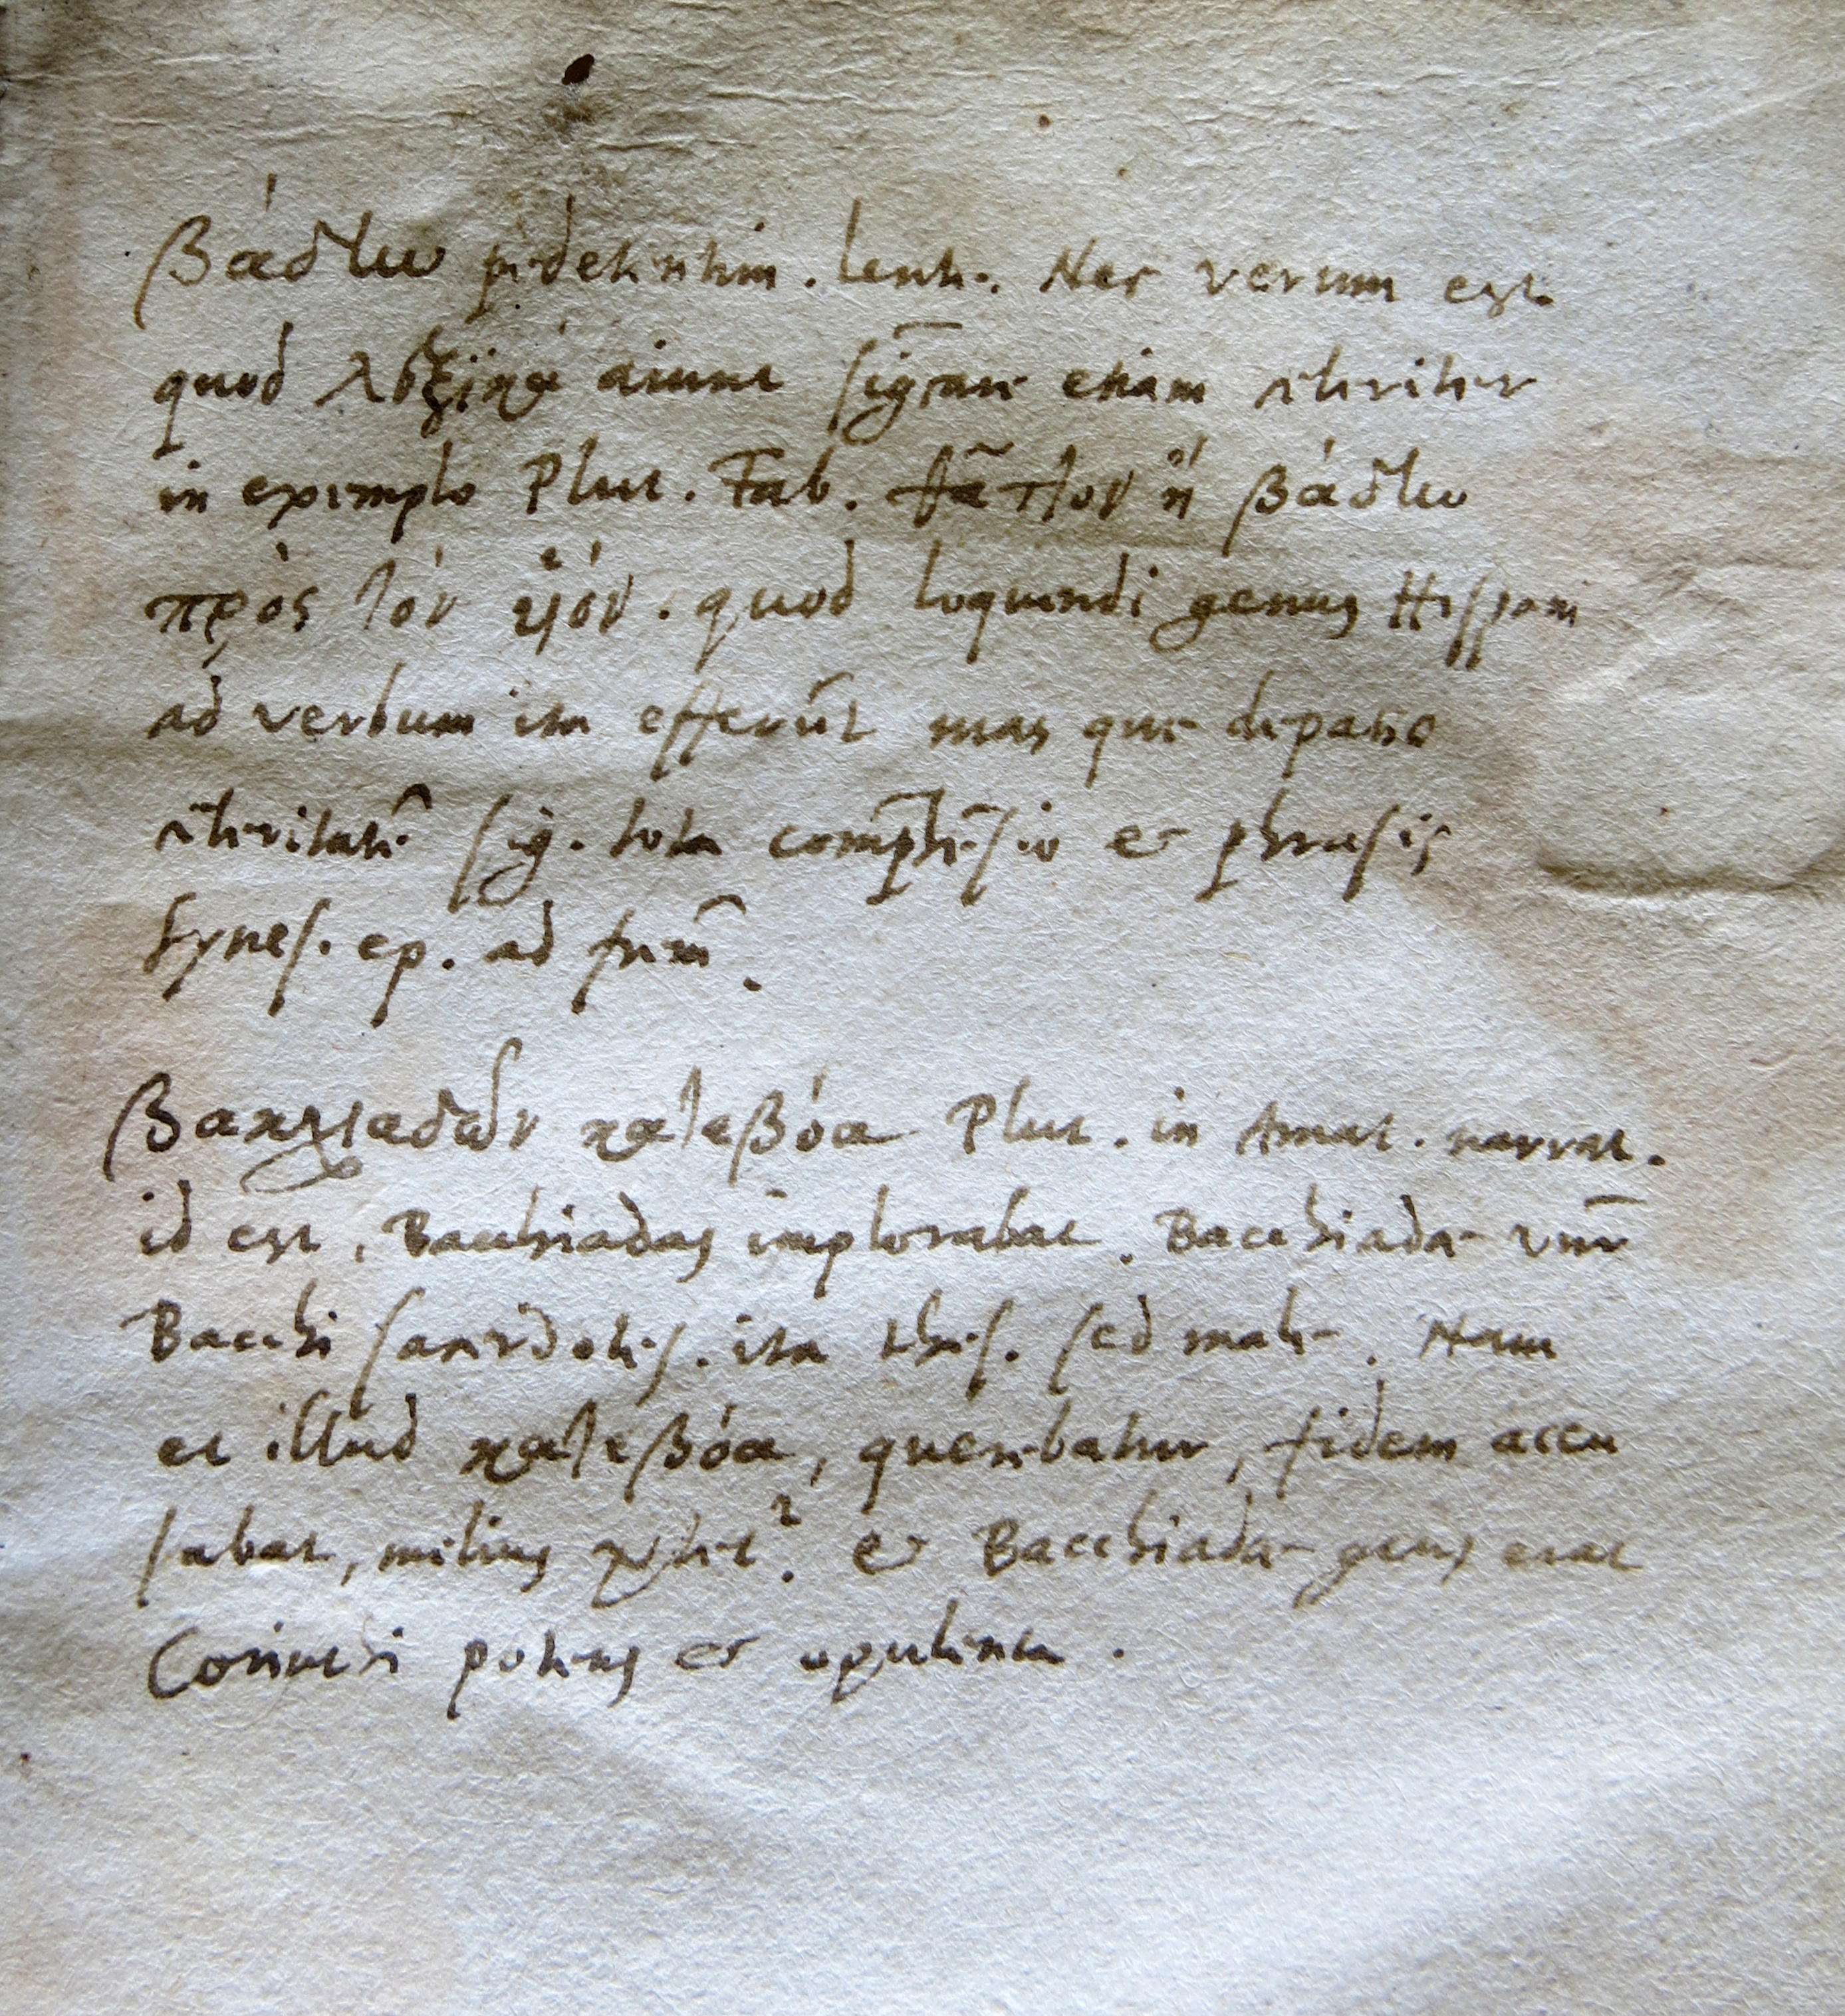 βάδην pedetentim. lente. Nec verum est
quod λεξικὰ aiunt significare etiam celeriter
in exemplo Plut. Fab. θᾶττον ἢ βάδην
πρὸς τὸν υἱόν. quod loquendi genus Hispani
ad verbum ita efferūt mas que de passo
celeritatē sig. tota comp̄hēsio e
 phrasis
Synes. ep. ad frēm.
Βακχιαδῶν κατεβόα Plut. in Amat. narrat.
id est, Bacchiadas implorabat. Bacchiadae
Bacchi sacerdotes. ita thes. sed male. Nam
et illud κατεβόα, querebatur, fidem accu
sabat, melius & Bacchiadae gens erat
Corinthi potens & opulenta.